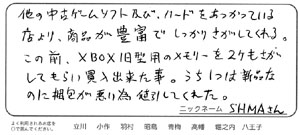 他の中古ゲームソフト及び、ハードをあつかっている
店より、商品が豊富でしっかりさがしてくれる。
この前、XBOX旧型用のメモリーを2ケもさが
してもらい買入出来た事。うち1つは新品な
のに梱包が悪い為値引してくれた。
ニックネーム SHMAさん
よく利用されるお店を
○で囲んでください。
立川 小作 羽村 昭島 青梅 高幡 堀之内 八王子